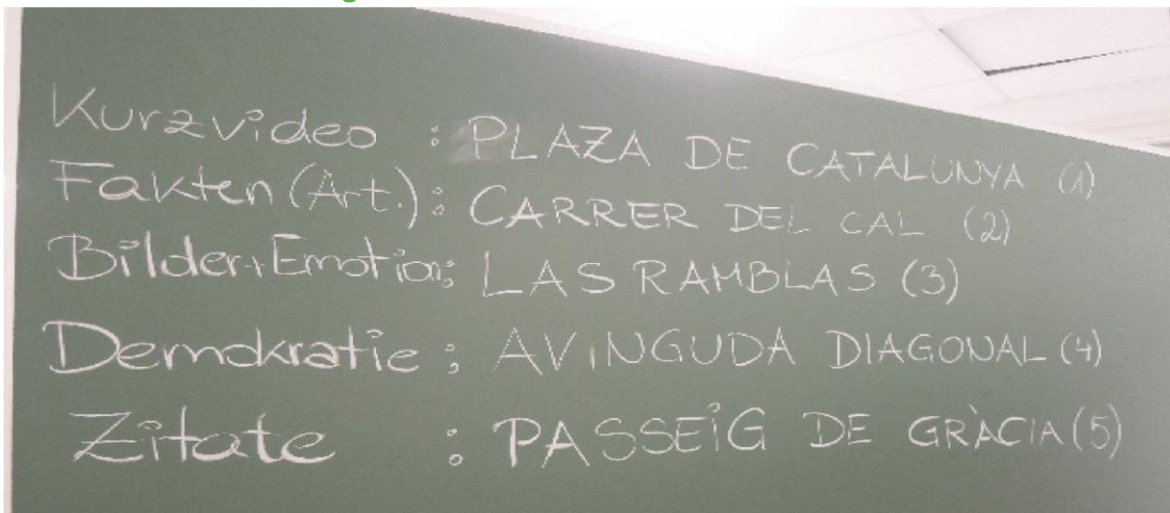 Kurzvideo : PLAZA DE CATALUNYA (1)
Fakten (Art.): CARRER DEL CAL (2)
Bilder+Emotion: LAS RAMBLAS (3)
Demokratie : AVINGUDA DIAGONAL (4)
Zitate : PASSEIG DE GRÀCIA (5)